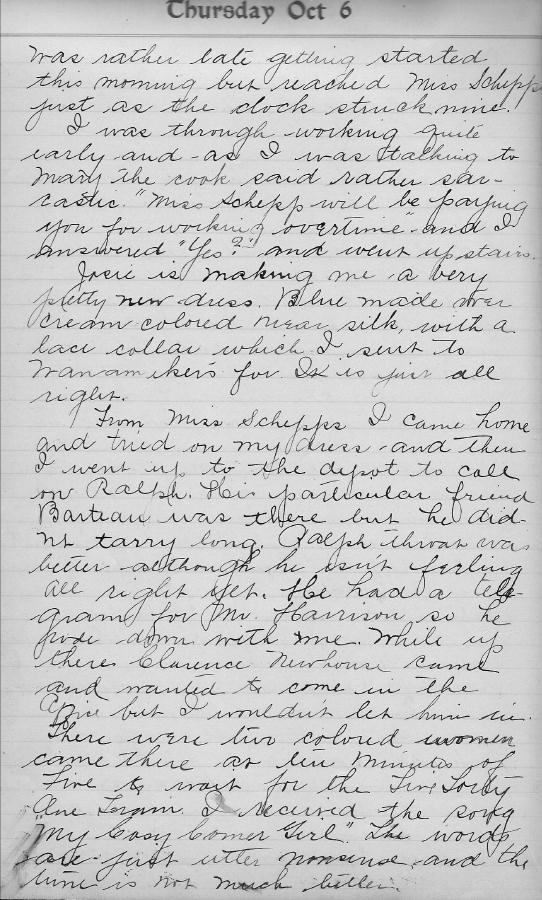 Thursday Oct 6
was rather late getting started
this morning but reached Miss Schepp
just as the clock struck nine.
I was through working quite
early and as I was talking to
Mary the cook said rather sar-
castic. "Miss Schepp will be paying
you for working overtime" and I
answered "Yes?" and went up stairs.
Josie is making me a very
pretty new dress. Blue made over
cream colored near silk, with a
lace collar which I sent to
Wanamakers for. It is just all
right.
From Miss Schepps I came home
and tried on my dress and then
I went up to the depot to call
on Ralph. His particular friend
Barteau was there but he did-
nt tarry long. Ralph throat was
better although he isn't feeling
all right yet. He had a tele-
gram for Mr. Harrison so he
rode down with me. While up
there Clarence Newhouse came
and wanted to come in the
office but I wouldn't let him in.
There were two colored women
came there at ten minutes of
Five to wait for the Five Forty
One Train. I received the song
"My Cosy Corner Girl". The words
are just utter nonsense and the
tune is not much better.